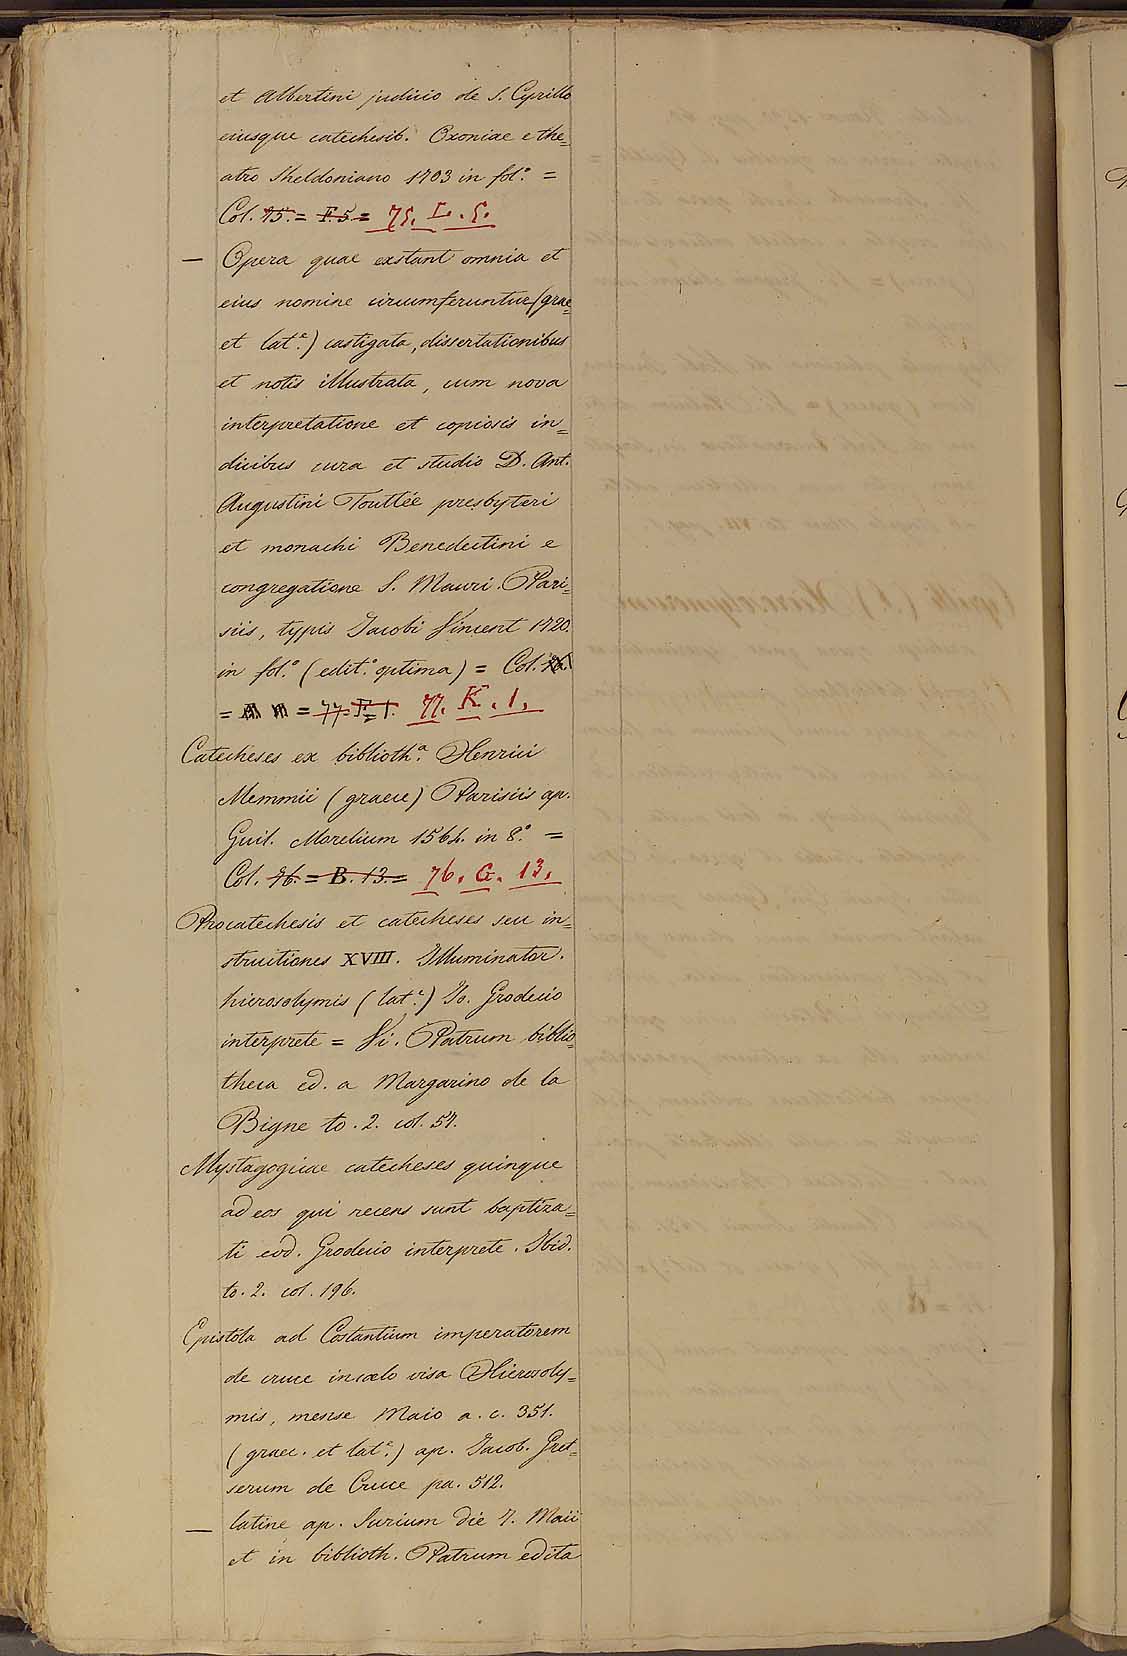 et Albertini judicio de S. Cyrillo
eiusque catechesib. Oxoniae e the=
atro Sheldoniano 1703 in fol.° =
Col. 75. = F. 5 = 75. L. 5.
— Opera quae exstant omnia et
eius nomine circumferuntur (grae=
et lat.e) castigata, dissertationibus
et notis illustrata, cum nova
interpretatione et copiosis in=
dicibus cura et studio D. Ant.
Augustini Touttée presbyteri
et monachi Benedectini e
congregatione S. Mauri. Pari=
siis, typis Jacobi Vincent 1720.
in fol.° (edit.° optima) = Col.
= = 77. F. 1. 77. K. 1.
Catecheses ex biblioth.a Henrici
Memmii (graece) Parisiis ap.
Guil. Morelium 1564. in 8.° =
Col. 76. = B. 13. = 76. G. 13.
Procatechesis et catecheses seu in=
structiones XVIII. Illuminator.
hierosolymis (lat.e) Jo. Grodecio
interprete = Vi. Patrum biblio=
theca ed. a Margarino de la
Bigne to. 2. col. 57.
Mystagogicae catecheses quinque
ad eos qui recens sunt baptiza=
ti eod. Grodecio interprete. Ibid.
to. 2. col. 196.
Epistola ad Costantium imperatorem
de cruce in coelo visa Hierosoly=
mis, mense Maio a. c. 351.
(graec. et lat.e) ap. Jacob. Gret=
serum de Cruce pa. 512.
— latine ap. Surium die 7. Maii
et in biblioth. Patrum edita